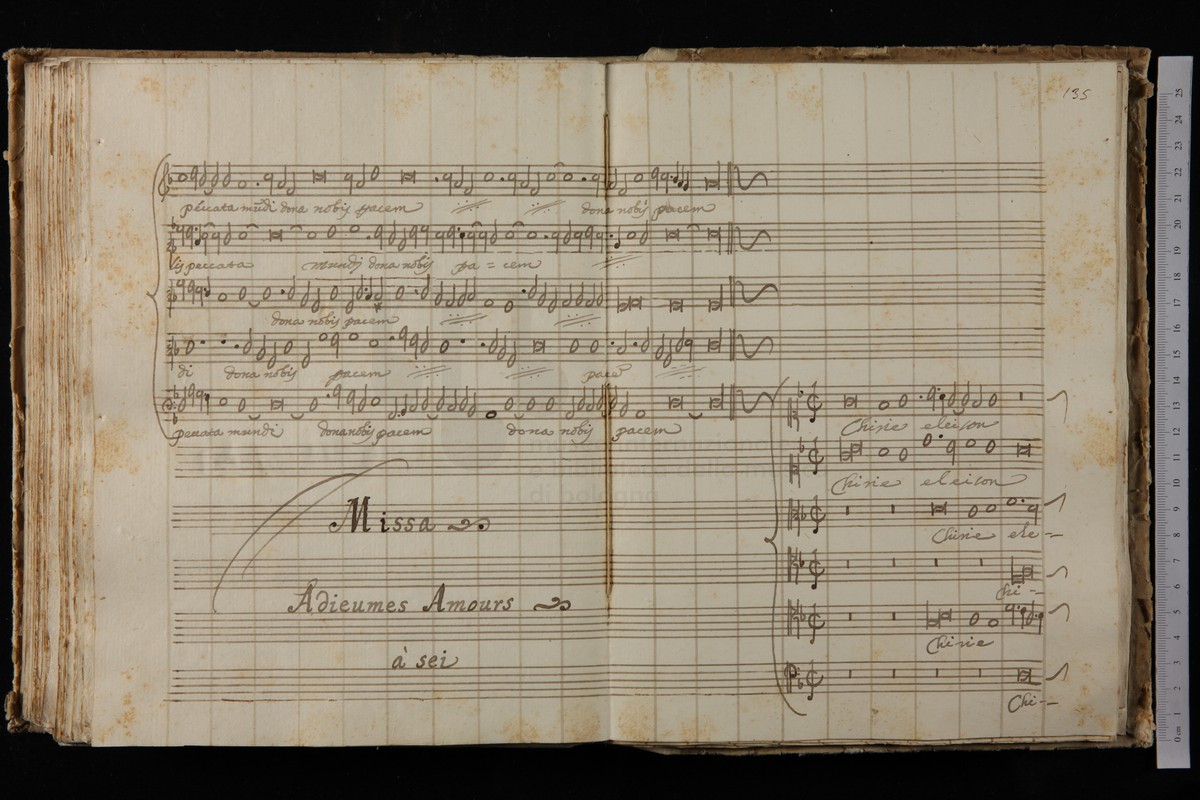 135
peccata mũdi dona nobis pacem dona nobis pacem
lis peccata mundj dona nobis pa = cem
dona nobis pacem
di dona nobis pacem pacẽ
peccata mundi dona nobis pacem dona nobis pacem
Missa
Adieumes Amours
à sei
Chirie eleison
Chirie eleison
Chirie ele-
Chi-
Chirie
Chi-
di bologna
25
24
23
22
21
20
19
18
17
16
15
14
13
12
11
10
9
8
7
6
5
4
3
2
1
0 cm